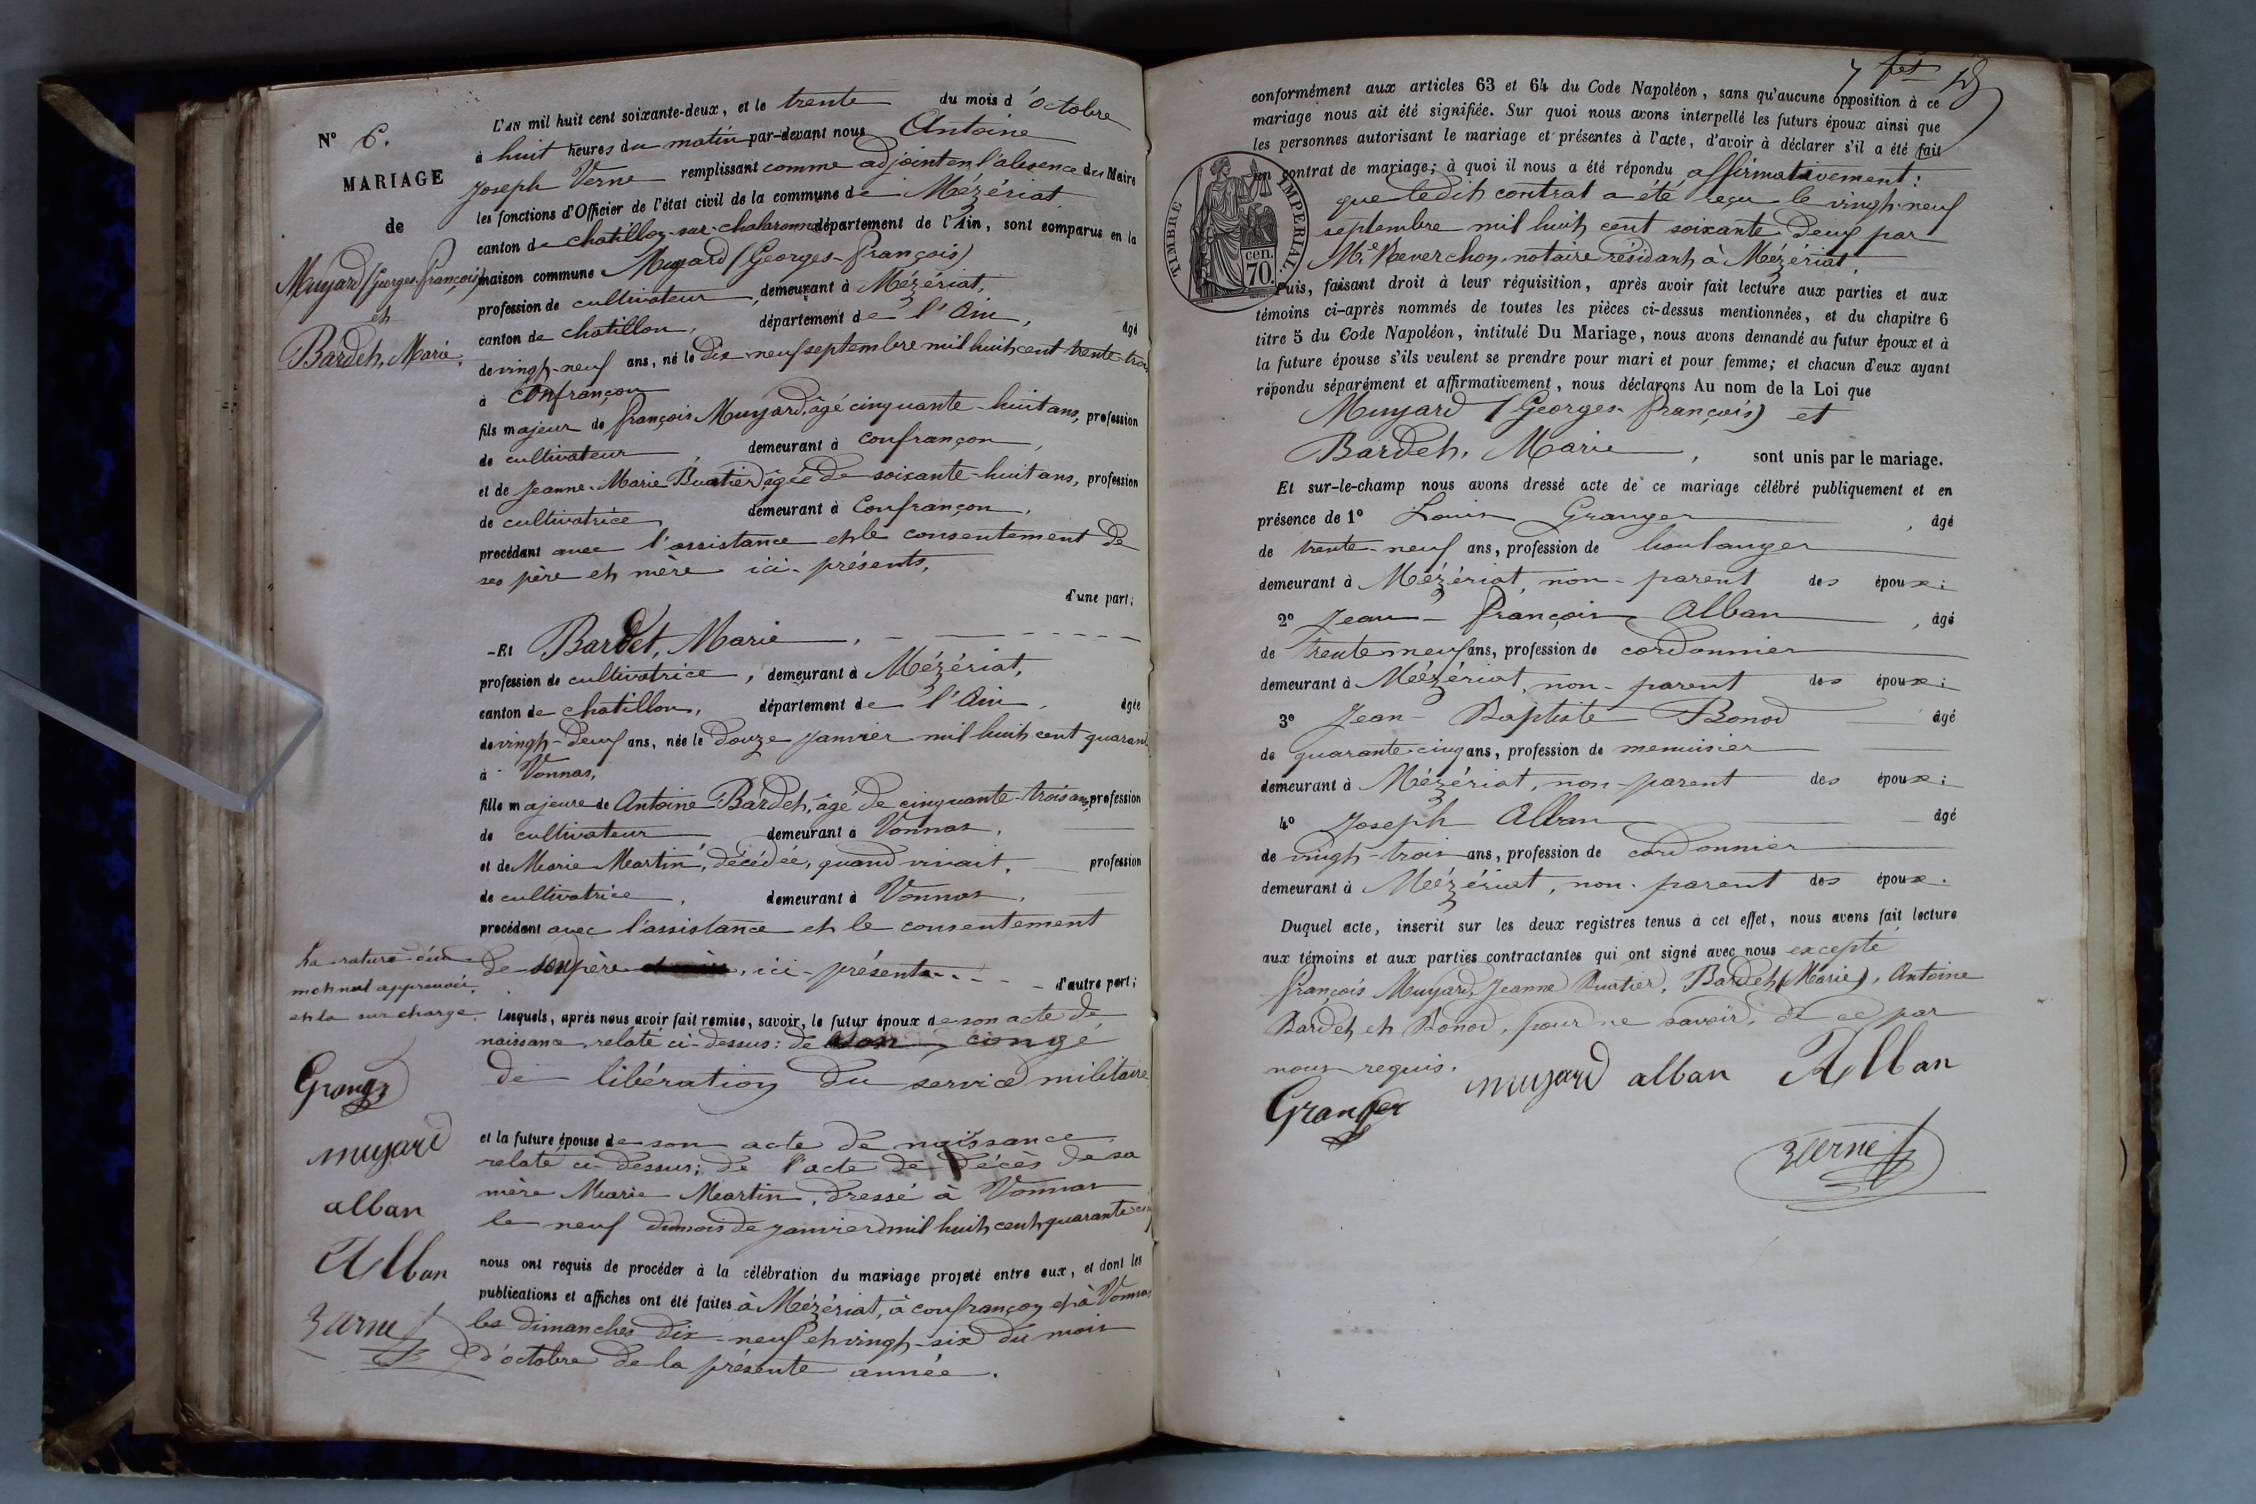 N° 6.
MARIAGE
de
Muyard (Georges-françois)
et
Bardet, Marie.
L'AN mil huit cent soixante-deux, et le trente du mois d'octobre
à huit heures du matin par-devant nous Antoine
Joseph Verne remplissant comme adjoint en l'absence du Maire
les fonctions d'Officier de l'état civil de la commune de Mézériat,
canton de chatillon-sur-chalaronne département de l'Ain, sont comparus en la
maison commune Muyard (Georges-françois)
profession de cultivateur, demeurant à Mézériat,
canton de chatillon, département de l'Ain, âgé
de vingt-neuf ans, né le Dix-neuf septembre mil huit cent trente-trois
à Confrançon
fils majeur de françois Muyard, âgé cinquante-huit ans, profession
de cultivateur, demeurant à confrançon,
et de Jeanne-Marie Buatier âgée de soixante-huit ans, profession
de cultivatrice demeurant à Confrançon,
procédant avec l'assistance et le consentement de
ses père et mère ici-présents,
d'une part;
-Et Bardet, Marie,
profession de cultivatrice, demeurant à Mézériat,
canton de chatillon, département de l'Ain, âgée
de vingt-deux ans, née le Douze janvier mil huit cent quarante
à Vonnas,
fille majeure de Antoine Bardet, âgé de cinquante-trois ans, profession
de cultivateur demeurant à Vonnas,
et de Marie Martin, décédée, quand vivait, profession
de cultivatrice, demeurant à Vonnas,
procédant avec l'assistance et le consentement
de son père, ici-présent. d'autre part;
La rature d'un
mot nul approuvée,
et la surcharge.
Lesquels, après nous avoir fait remise, savoir, le futur époux de son acte de
naissance, relaté ci-dessus: de son congé
de libération du service militaire
et la future épouse de son acte de naissance
relaté ci-dessus; de l'acte de décès de sa
mère Marie Martin, dressé à Vonnas
le neuf du mois de janvier mil huit cent quarante cinq
nous ont requis de procéder à la célébration du mariage projeté entre eux, et dont les
publications et affiches ont été faites à Mézériat, à confrançon et à Vonnas
les dimanches dix-neuf et vingt-six du mois
d'octobre de la présente année.
Granger
muyard
alban
Alban
Verne
7 fet
conformément aux articles 63 et 64 du Code Napoléon, sans qu'aucune opposition à ce
mariage nous ait été signifiée. Sur quoi nous avons interpellé les futurs époux ainsi que
les personnes autorisant le mariage et présentes à l'acte, d'avoir à déclarer s'il a été fait
un contrat de mariage; à quoi il nous a été répondu affirmativement:
que ledit contrat a été reçu le vingt-neuf
septembre mil huit cent soixante-deux par
Me Reverchon, notaire résidant à Mézériat,
TIMBRE IMPERIAL.
70 cen.
Puis, faisant droit à leur réquisition, après avoir fait lecture aux parties et aux
témoins ci-après nommés de toutes les pièces ci-dessus mentionnées, et du chapitre 6
titre 5 du Code Napoléon, intitulé Du Mariage, nous avons demandé au futur époux et à
la future épouse s'ils veulent se prendre pour mari et pour femme; et chacun d'eux ayant
répondu séparément et affirmativement, nous déclarons Au nom de la Loi que
Muyard (Georges-françois) et
Bardet, Marie, sont unis par le mariage.
Et sur-le-champ nous avons dressé acte de ce mariage célébré publiquement et en
présence de 1° Louis Granger, âgé
de trente-neuf ans, profession de boulanger
demeurant à Mézériat, non-parent des époux;
2° Jean-françois Alban, âgé
de trente neuf ans, profession de cordonnier
demeurant à Mézériat, non-parent des époux;
3° Jean-Baptiste Bonod âgé
de quarante-cinq ans, profession de menuisier
demeurant à Mézériat, non-parent des époux;
4° Joseph Alban âgé
de vingt-trois ans, profession de cordonnier
demeurant à Mézériat, non-parent des époux.
Duquel acte, inscrit sur les deux registres tenus à cet effet, nous avons fait lecture
aux témoins et aux parties contractantes qui ont signé avec nous excepté
françois Muyard, Jeanne Buatier, Bardet (Marie), Antoine
Bardet et Bonod, pour ne savoir, de ce par
nous requis.
muyard alban Alban
Granger
Verne